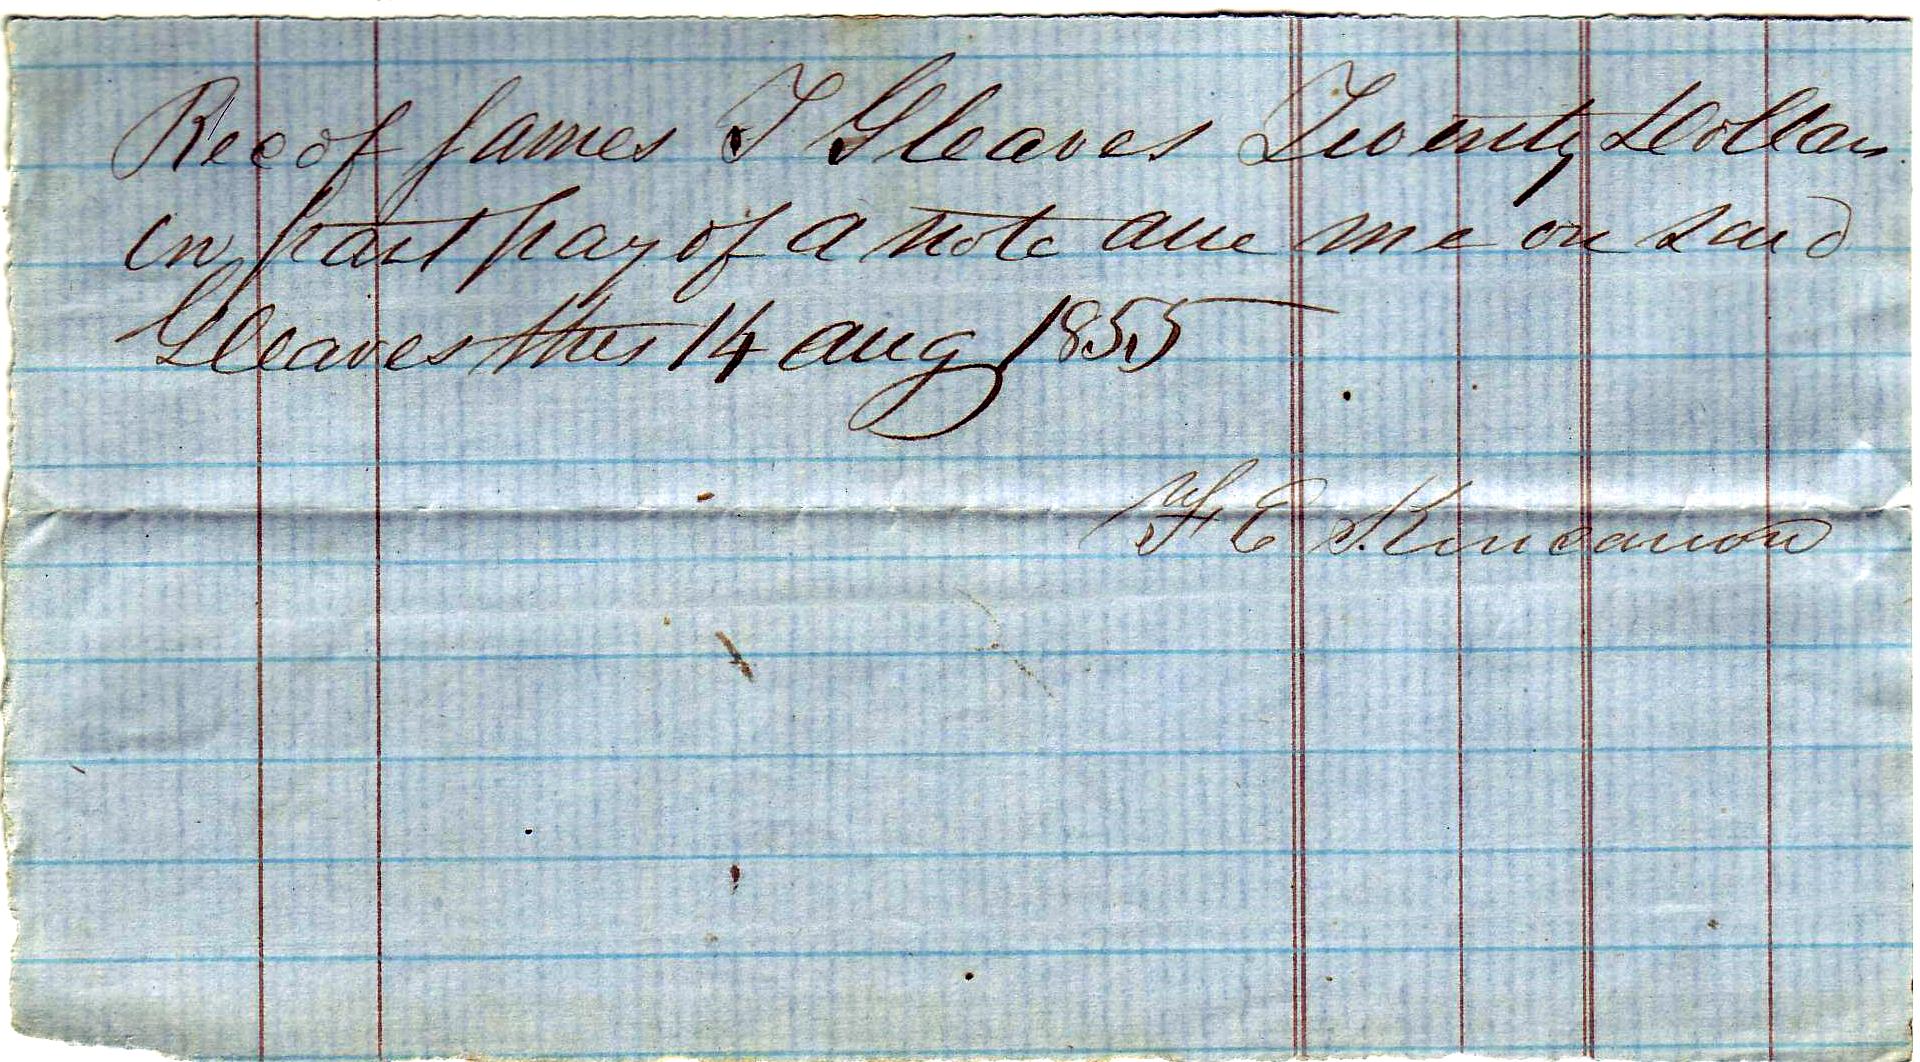 Rec of James T Gleaves Twenty Dollars
in part pay of a note due me on said
Gleaves this 14 Aug 1855
F E Kincannon